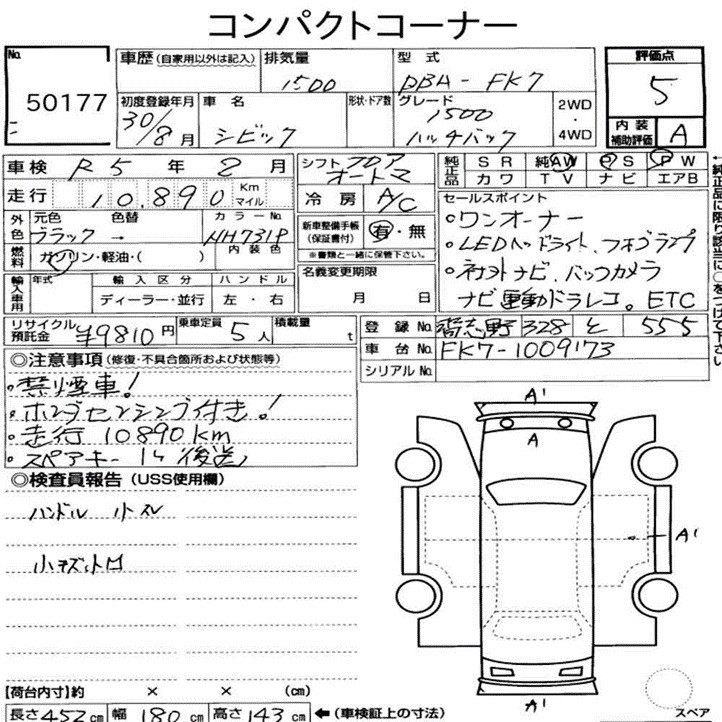 コンパクトコーナー
No. 50177
車歴 (自家用以外は記入)
排気量 1500
型式 DBA-FK7
評価点 5
初度登録年月 30/8月
車名 シビック
形状・ドア数
グレード 1500 ハッチバック
2WD・4WD
内装補助評価 A
車検 R5年8月
シフト フロア オートマ
純正品 SR 純AW PS PW
カワ TV ナビ エアB
走行 10.890 Km マイル
冷房 A/C
セールスポイント
外色 元色 ブラック 色替 → カラーNo. NH731P
内装色
新車整備手帳 (保証書付) 有・無
※書類と一緒に保管下さい。
・ワンオーナー
・LEDヘッドライト、フォグランプ
燃料 ガソリン・軽油・( )
名義変更期限 月 日
・ネオトナビ、バックカメラ
ナビ連動ドラレコ。ETC
輸入車用 年式 輸入区分 ハンドル
ディーラー・並行 左・右
リサイクル預託金 ¥9810円
乗車定員 5人
積載量 t
登録No. 習志野 328 と 555
車台No. FK7-1009173
シリアルNo.
◎注意事項 (修復・不具合箇所および状態等)
・禁煙車!
・ホンダセンシング付き!
・走行 10890km
・スペアキー 1ケ後送
◎検査員報告 (USS使用欄)
ハンドル 小スレ
小キズ小凹
A'
A
A'
A'
【荷台内寸】約 × × (cm)
スペア
長さ 452 cm 幅 180 cm 高さ 143 cm ←(車検証上の寸法)